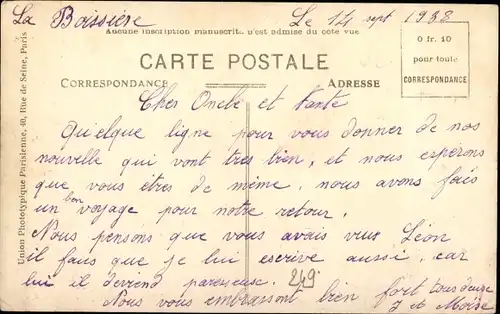 La Boissière Le 14 sept 1938
Aucune inscription manuscrite n'est admise du coté vue
CARTE POSTALE
CORRESPONDANCE ADRESSE
0 fr. 10
pour toute
CORRESPONDANCE
Union Phototypique Parisienne, 40, Rue de Seine, Paris
Cher Oncle et Tante
Quelque ligne pour vous donner de nos
nouvelle qui vont tres bien, et nous esperons
que vous êtres de même, nous avons fais
un bon voyage pour notre retour.
Nous pensons que vous avais vue Léon
il faus que je lui escrive aussi, car
lui il deviend paresseuse.
249
Nous vous embrassont bien fort tous deuse
J et Moïse